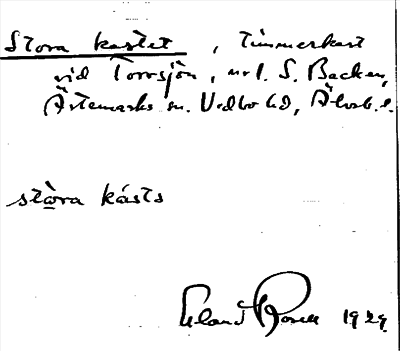 Stora kastet, timmerkast
vid Torrsjön, nrl. S. Backen,
Ärtemarks sn. Vedbo hd, Älvsb. l.
stòra kásts
Erland Rosell 1929.